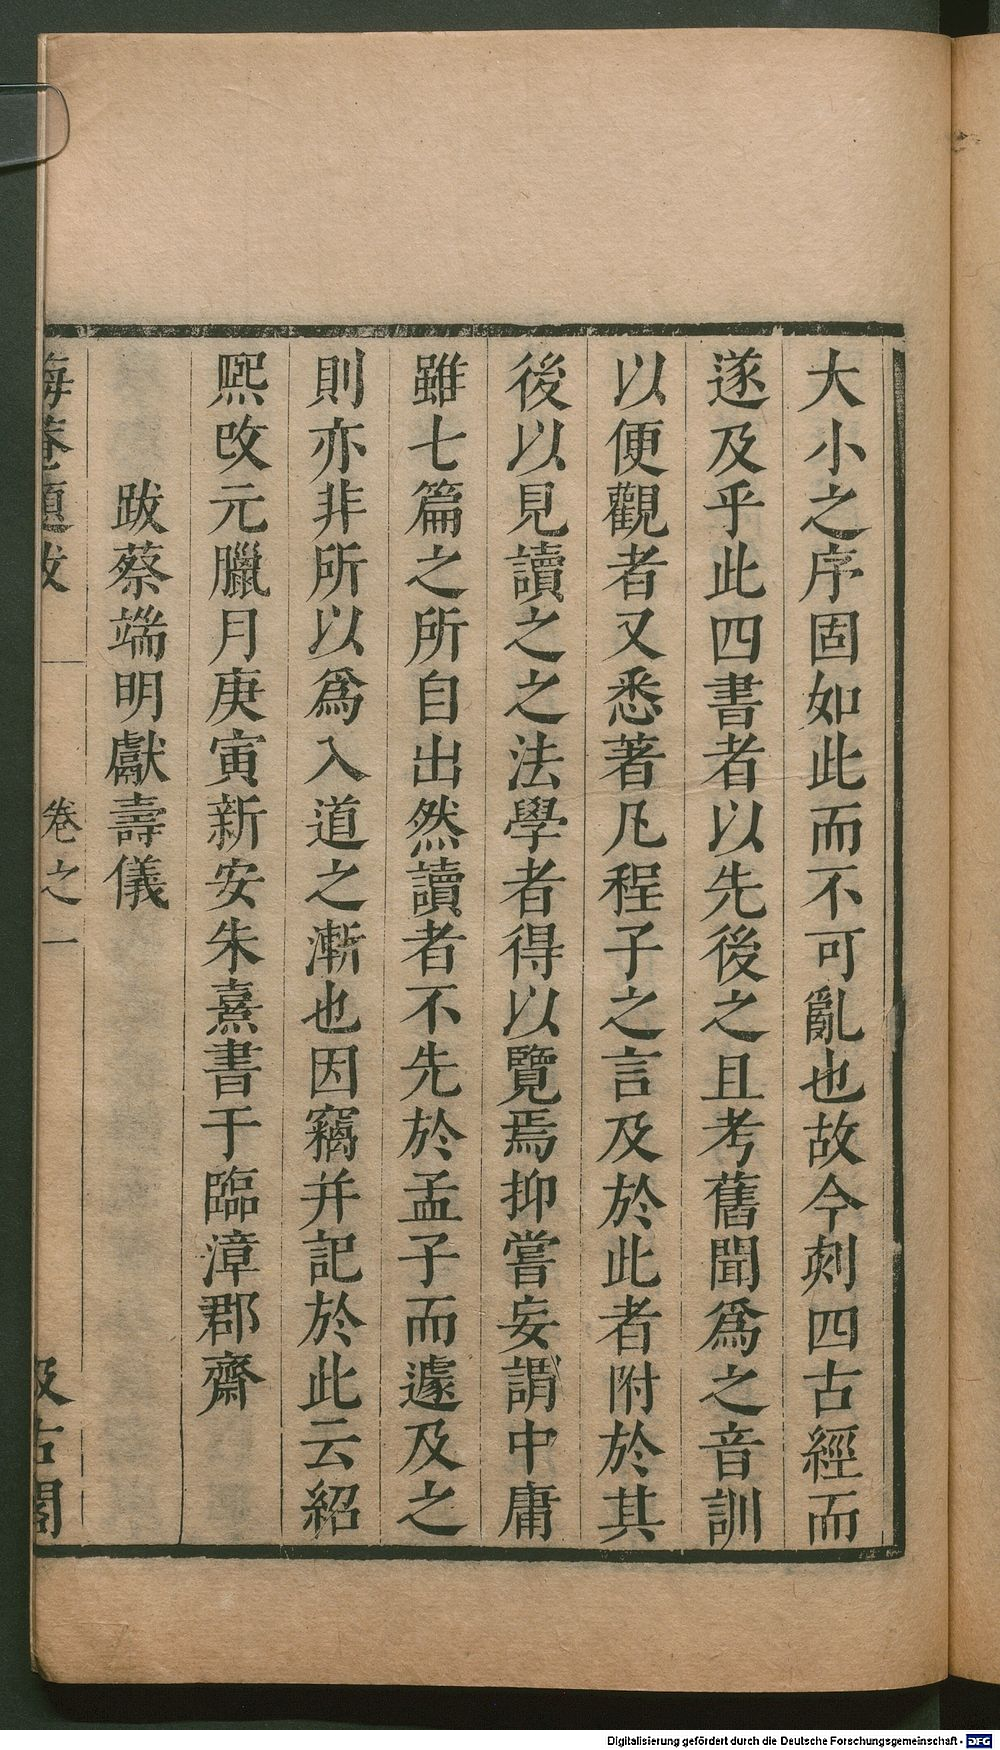 大小之序固如此而不可亂也故今刻四古經而
遂及乎此四書者以先後之且考舊聞爲之音訓
以便觀者又悉著凡程子之言及於此者附於其
後以見讀之之法學者得以覽焉抑嘗妄謂中庸
雖七篇之所自出然讀者不先於孟子而遽及之
則亦非所以爲入道之漸也因竊并記於此云紹
熙改元臘月庚寅新安朱熹書于臨漳郡齋
跋蔡端明獻壽儀
海菴題跋 卷之一 汲古閣
Digitalisierung gefördert durch die Deutsche Forschungsgemeinschaft - DFG